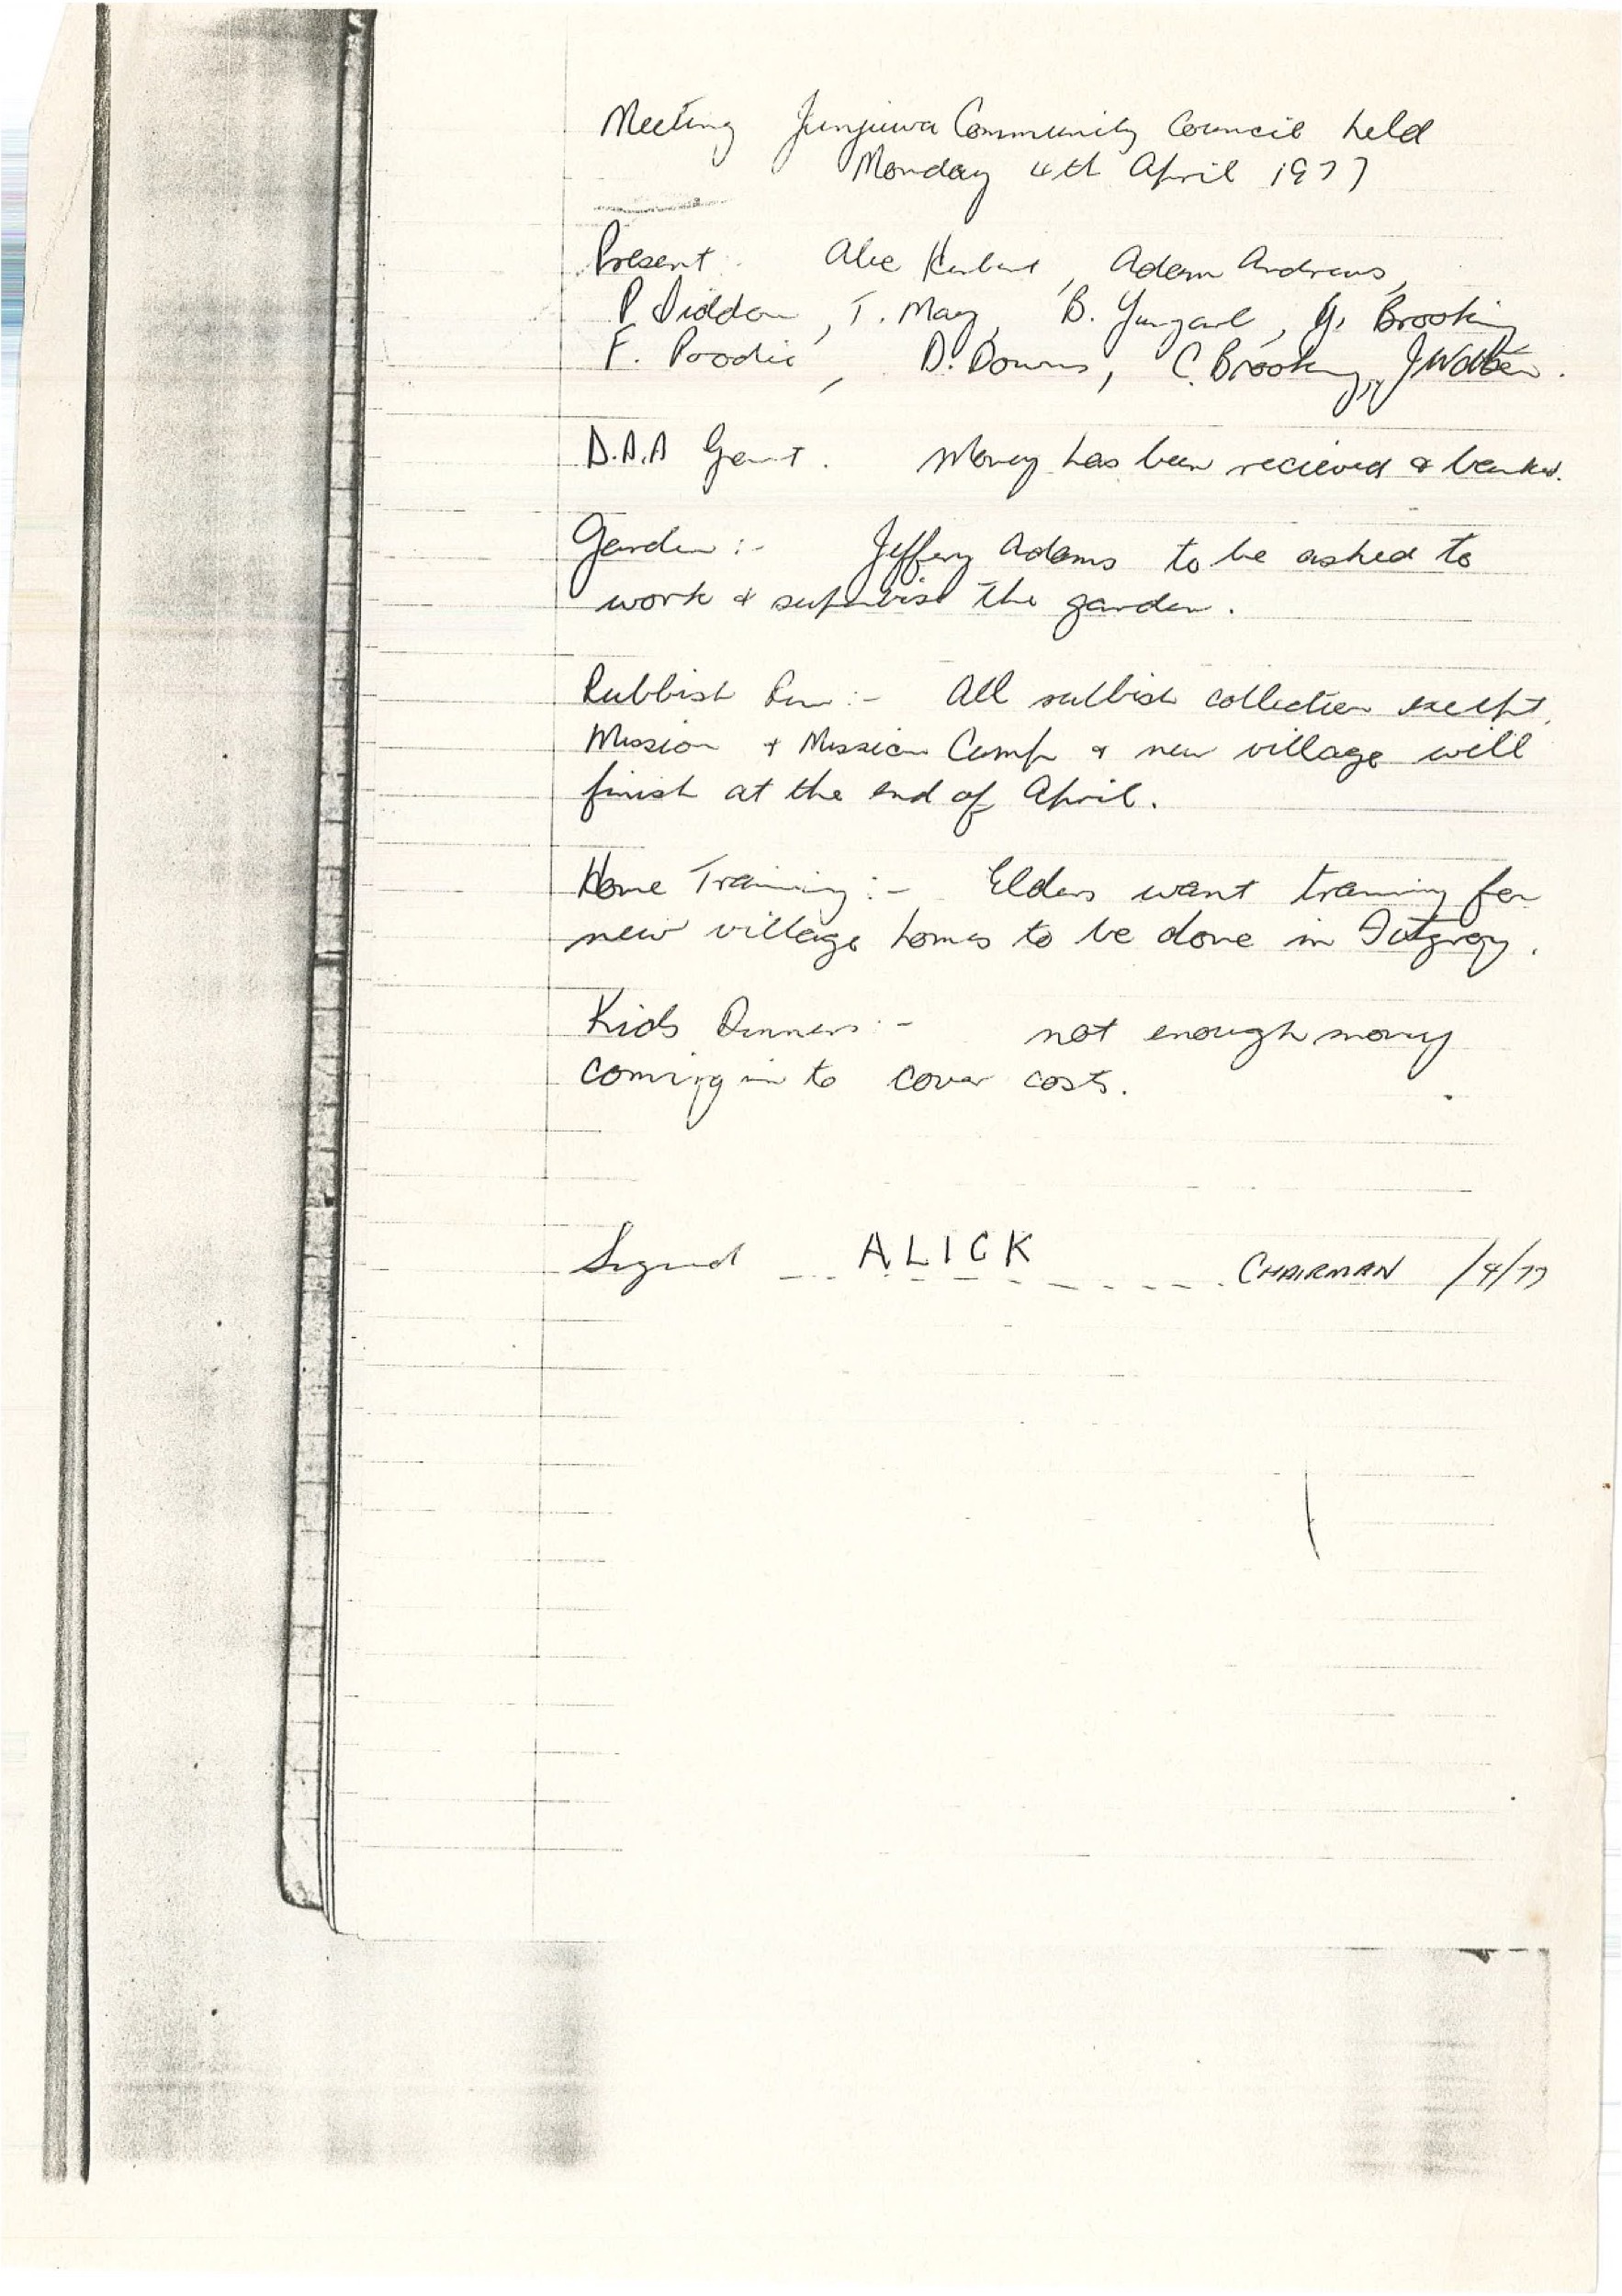 Meeting Junjuwa Community Council held
Monday 4th April 1977
Present. Alec Adam Andrews,
P. , T. May, B. , Brooking
F. Poodie, D. Downs, C. Brooking,
D.A.A Grant. Money has been recieved & banked.
Garden :- Jeffery Adams to be asked to
work & supervise the garden.
Rubbish Run :- All rubbish collection except
Mission & Mission Camp & new village will
finish at the end of April.
Home Training :- Elders want training for
new village homes to be done in Fitzroy.
Kids Dinners :- not enough money
coming in to cover costs.
Signed ALICK CHAIRMAN /4/77